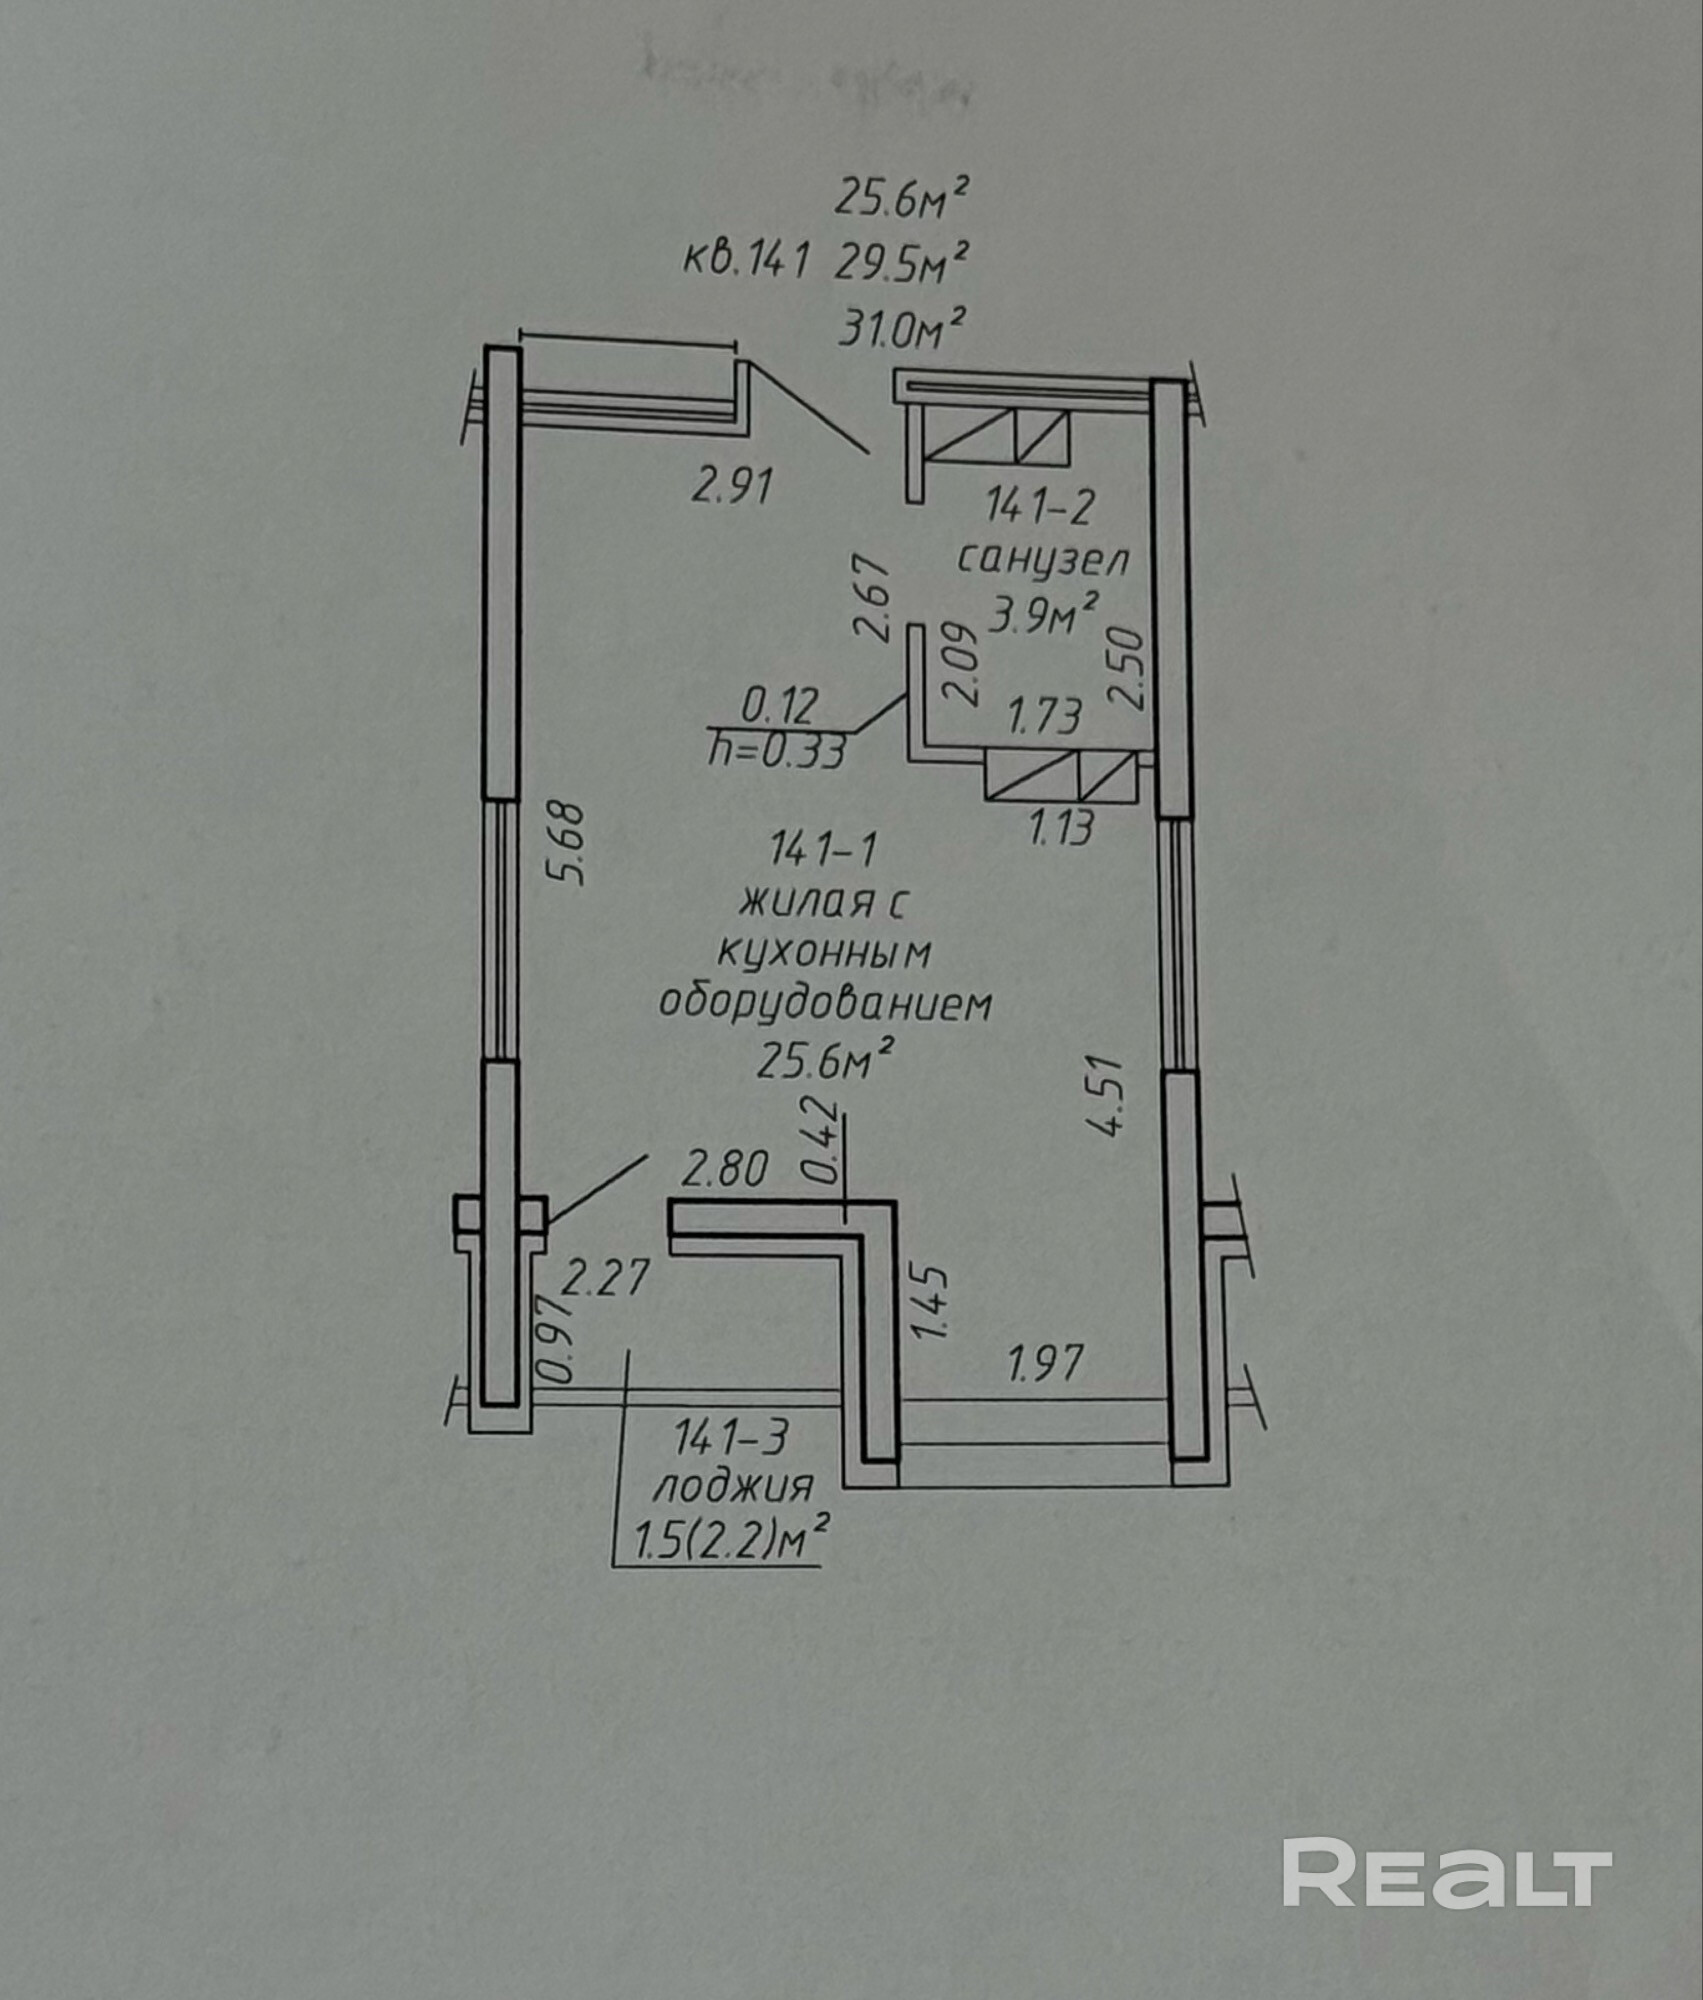 25.6м²
кв.141 29.5м²
31.0м²
2.91
141-2
санузел
3.9м²
2.67
2.09
2.50
1.73
0.12
h=0.33
1.13
5.68
141-1
жилая с
кухонным
оборудованием
25.6м²
4.51
0.42
2.80
2.27
0.97
1.45
1.97
141-3
лоджия
1.5(2.2)м²
REALT